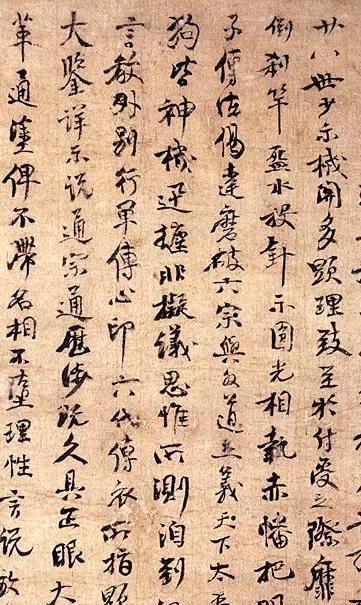 廿八世少示機關多顯理致至於付受之際靡
倒剎竿盋水投針示圓光相執赤幡把明
子傳法偈達磨破六宗與外道立義天下太
狗皆神機迅捷非擬議思惟所測洎到
言教外別行單傳心印六代傳衣所指顯
大鑒詳示說通宗通歷涉既久具正眼大
革通塗俾不滯名相不墮理性言說放